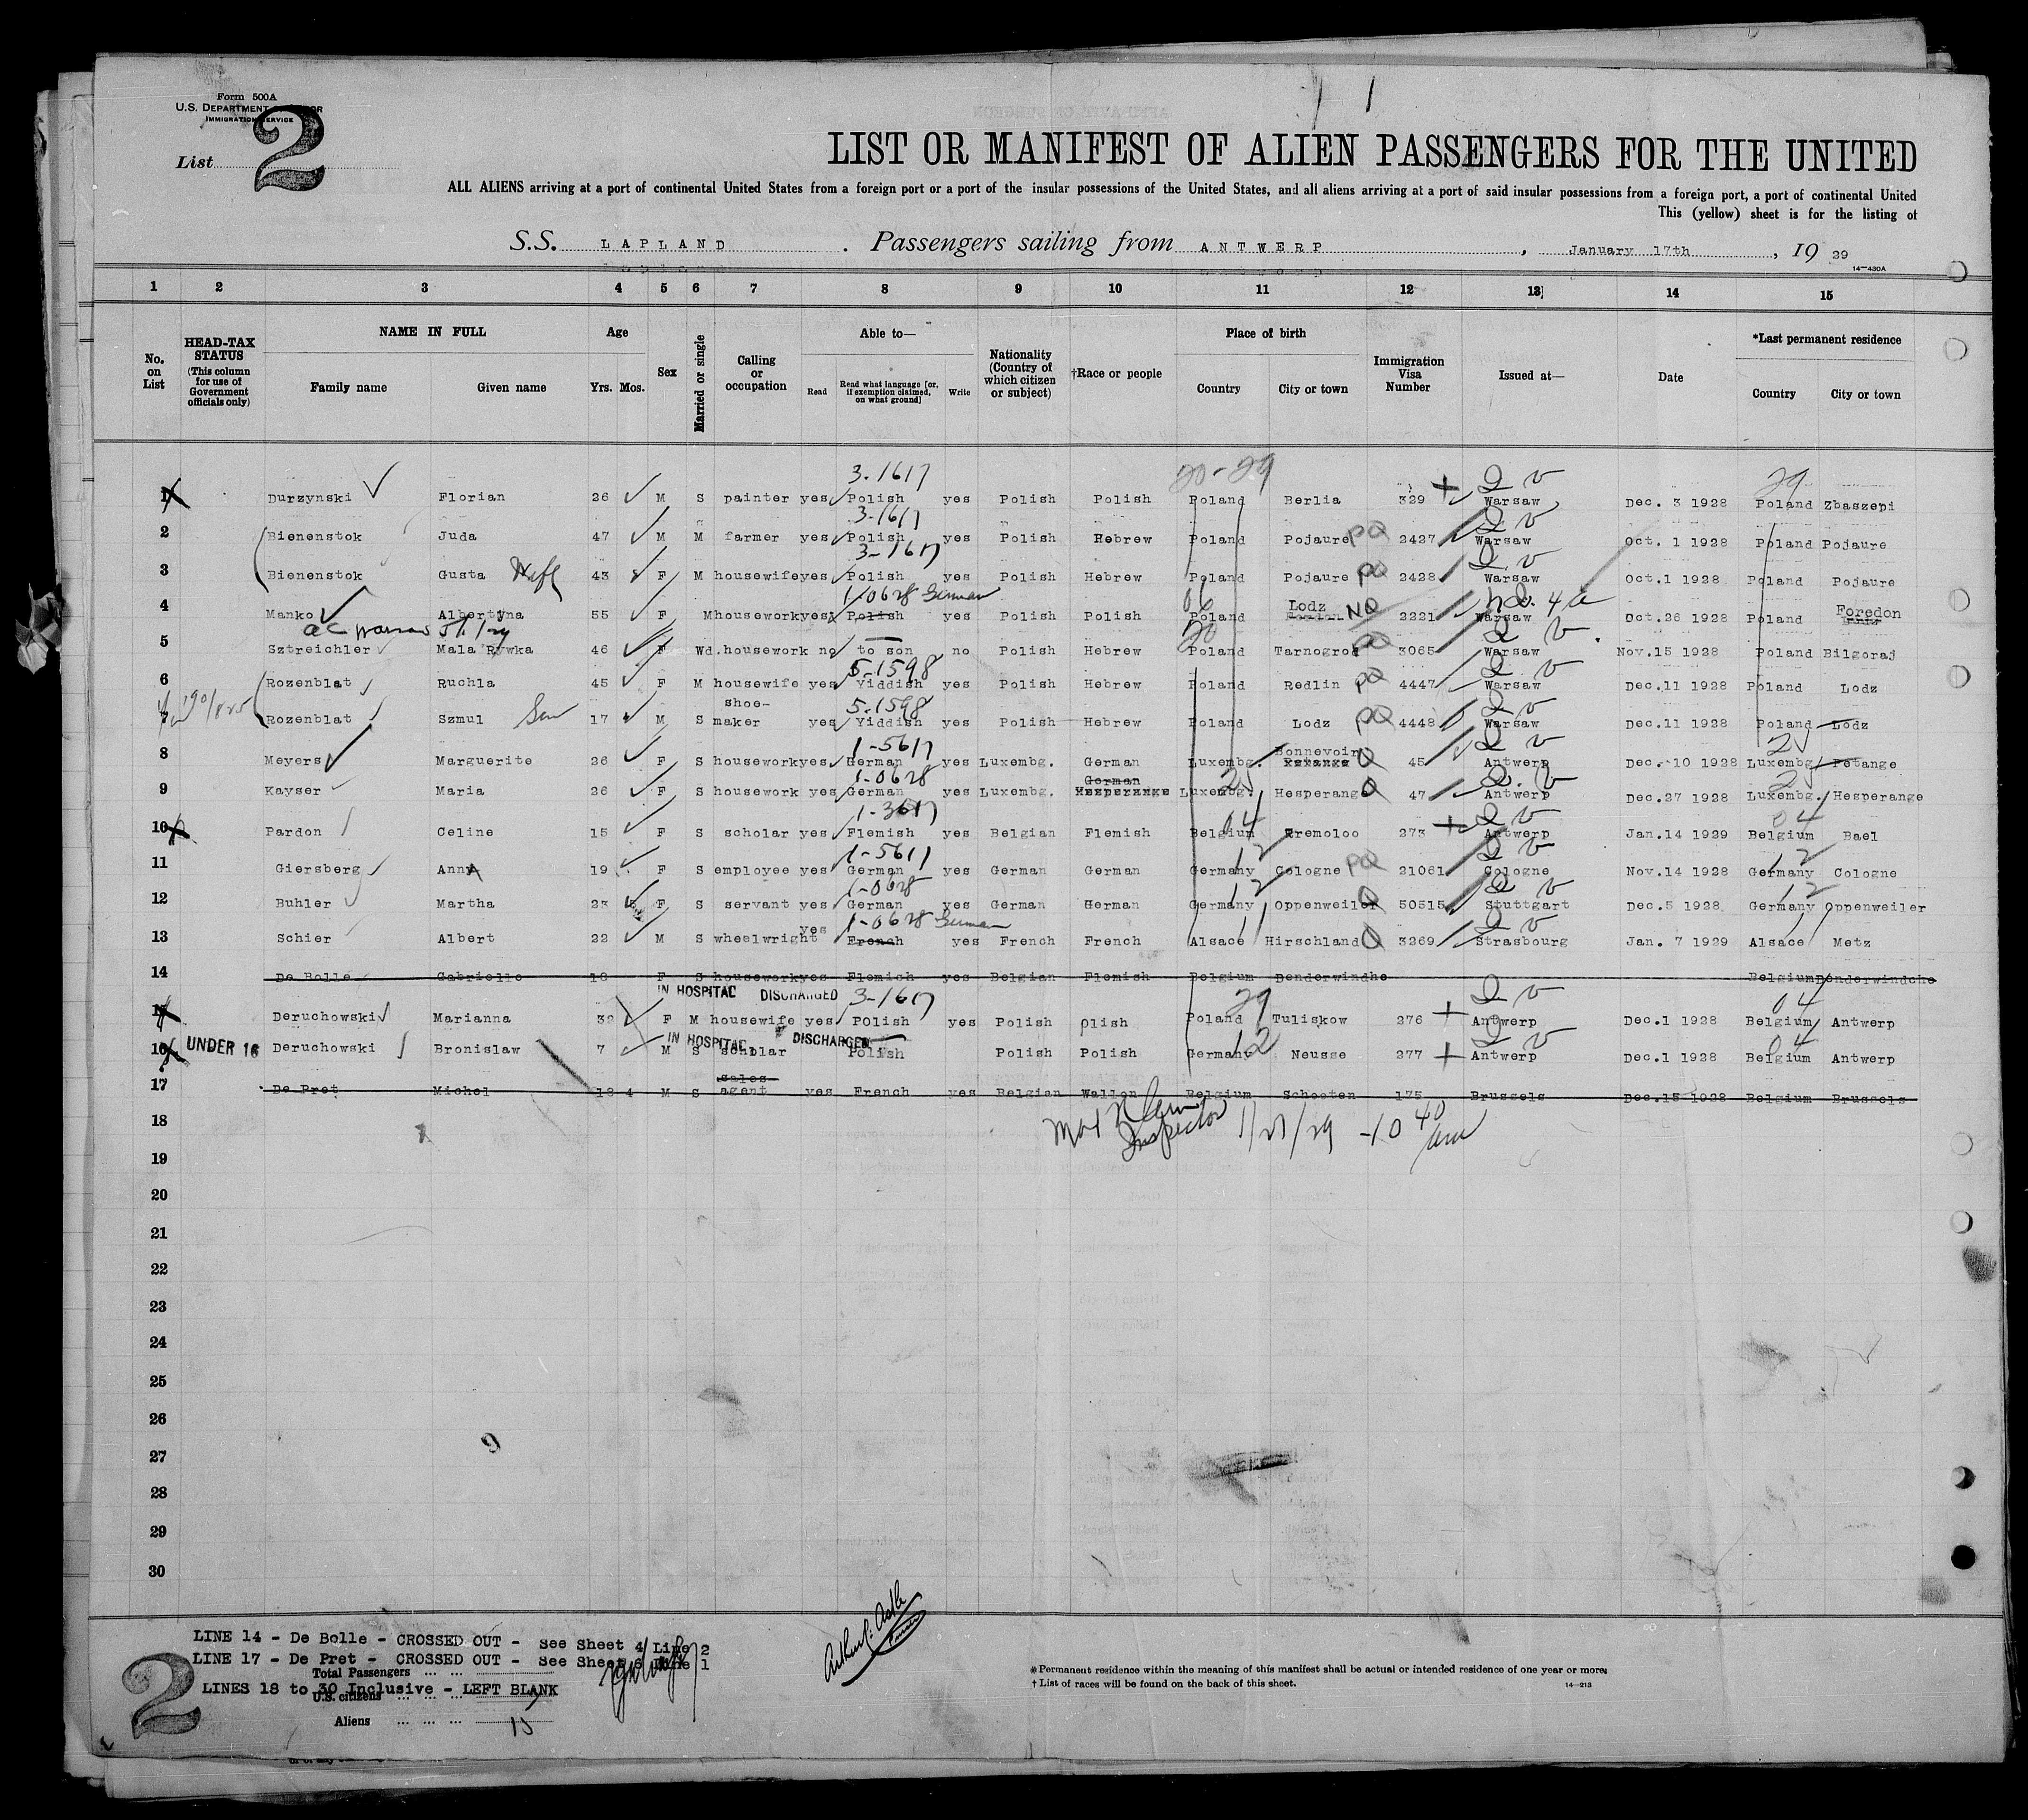 Form 500A
U.S. DEPARTMENT OF LABOR
IMMIGRATION SERVICE
List 2
1 1
LIST OR MANIFEST OF ALIEN PASSENGERS FOR THE UNITED
ALL ALIENS arriving at a port of continental United States from a foreign port or a port of the insular possessions of the United States, and all aliens arriving at a port of said insular possessions from a foreign port, a port of continental United
This (yellow) sheet is for the listing of
S.S. LAPLAND . Passengers sailing from ANTWERP , January 17th , 19 29
14—430A
1 2 3 4 5 6 7 8 9 10 11 12 13 14 15
No. on List
HEAD-TAX STATUS (This column for use of Government officials only)
NAME IN FULL Family name Given name
Age Yrs. Mos.
Sex
Married or single
Calling or occupation
Able to— Read Read what language [or, if exemption claimed, on what ground] Write
Nationality (Country of which citizen or subject)
†Race or people
Place of birth Country City or town
Immigration Visa Number
Issued at—
Date
*Last permanent residence Country City or town
3-1617 20-29 29
1 Durzynski Florian 26 M S painter yes Polish yes Polish Polish Poland Berlia 329 Warsaw Dec. 3 1928 Poland Zbaszepi
3-1617
2 Bienenstok Juda 47 M M farmer yes Polish yes Polish Hebrew Poland Pojaure PQ 2427 Warsaw Oct. 1 1928 Poland Pojaure
3-1617
3 Bienenstok Gusta Wife 43 F M housewife yes Polish yes Polish Hebrew Poland Pojaure PQ 2428 Warsaw Oct.1 1928 Poland Pojaure
1-0628 German
4 Manko Albertyna 55 F M housework yes Polish yes Polish Polish Poland Lodz NQ 2221 Warsaw Oct.26 1928 Poland Foredon
5 Sztreichler Mala Rywka 46 F Wd. housework no to son no Polish Hebrew Poland Tarnogrod PQ 3065 Warsaw Nov.15 1928 Poland Bilgoraj
5-1598
6 Rozenblat Ruchla 45 F M housewife yes Yiddish yes Polish Hebrew Poland Redlin PQ 4447 Warsaw Dec.11 1928 Poland Lodz
5-1598
7 Rozenblat Szmul Son 17 M S shoe-maker yes Yiddish yes Polish Hebrew Poland Lodz PQ 4448 Warsaw Dec.11 1928 Poland Lodz
1-5617 25
8 Meyers Marguerite 26 F S housework yes German yes Luxembg. German Luxembg. Bonnevoin Q 45 Antwerp Dec. 10 1928 Luxembg. Petange
1-0628 German 25 25
9 Kayser Maria 26 F S housework yes German yes Luxembg. Hesperange Luxembg. Hesperange 47 Antwerp Dec.27 1928 Luxembg. Hesperange
1-3617 04 04
10 Pardon Celine 15 F S scholar yes Flemish yes Belgian Flemish Belgium Tremoloo 273 Antwerp Jan.14 1929 Belgium Bael
1-5617 12 12
11 Giersberg Anna 19 F S employee yes German yes German German Germany Cologne PQ 21061 Cologne Nov.14 1928 Germany Cologne
1-0628 12 12
12 Buhler Martha 23 F S servant yes German yes German German Germany Oppenweiler 50515 Stuttgart Dec.5 1928 Germany Oppenweiler
1-0628 German 11 11
13 Schier Albert 22 M S wheelwright yes French yes French French Alsace Hirschland Q 3269 Strasbourg Jan. 7 1929 Alsace Metz
14 De Bolle Gabrielle 18 F S housework yes Flemish yes Belgian Flemish Belgium Denderwindhe Belgium Denderwindche
IN HOSPITAL DISCHARGED 3-1617 29 04
15 Deruchowski Marianna 32 F M housewife yes Polish yes Polish plish Poland Tuliskow 276 Antwerp Dec.1 1928 Belgium Antwerp
IN HOSPITAL DISCHARGED 12 04
16 UNDER 16 Deruchowski Bronislaw 7 M S scholar Polish Polish Polish Germany Neusse 277 Antwerp Dec.1 1928 Belgium Antwerp
17 De Pret Michel 18 4 M S sales agent yes French yes Belgian Wallon Belgium Schooten 175 Brussels Dec.15 1928 Belgium Brussels
18 Inspector 1/27/29 -10 40 am
19
20
21
22
23
24
25
26
27
28
29
30
LINE 14 - De Bolle - CROSSED OUT - See Sheet 4 Line 2
LINE 17 - De Pret - CROSSED OUT - See Sheet 6 Line 1
Total Passengers
LINES 18 to 30 Inclusive - LEFT BLANK
U.S. citizens
Aliens 15
2
*Permanent residence within the meaning of this manifest shall be actual or intended residence of one year or more.
†List of races will be found on the back of this sheet.
14—213